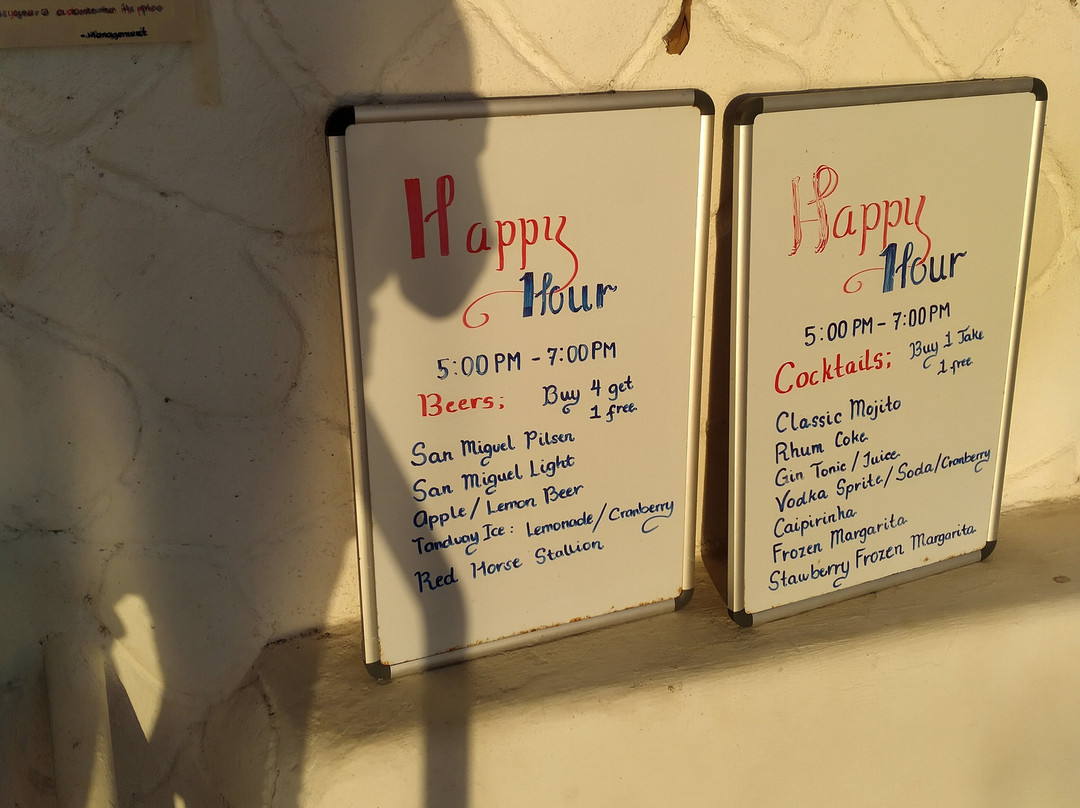 -Management
Happy
Hour
5:00 PM - 7:00 PM
Beers; Buy 4 get
1 free
San Miguel Pilsen
San Miguel Light
Apple/Lemon Beer
Tanduay Ice: Lemonade/Cranberry
Red Horse Stallion
Happy
Hour
5:00 PM - 7:00 PM
Cocktails; Buy 1 Take
1 free
Classic Mojito
Rhum Coke
Gin Tonic/Juice
Vodka Sprite/Soda/Cranberry
Caipirinha
Frozen Margarita
Stawberry Frozen Margarita